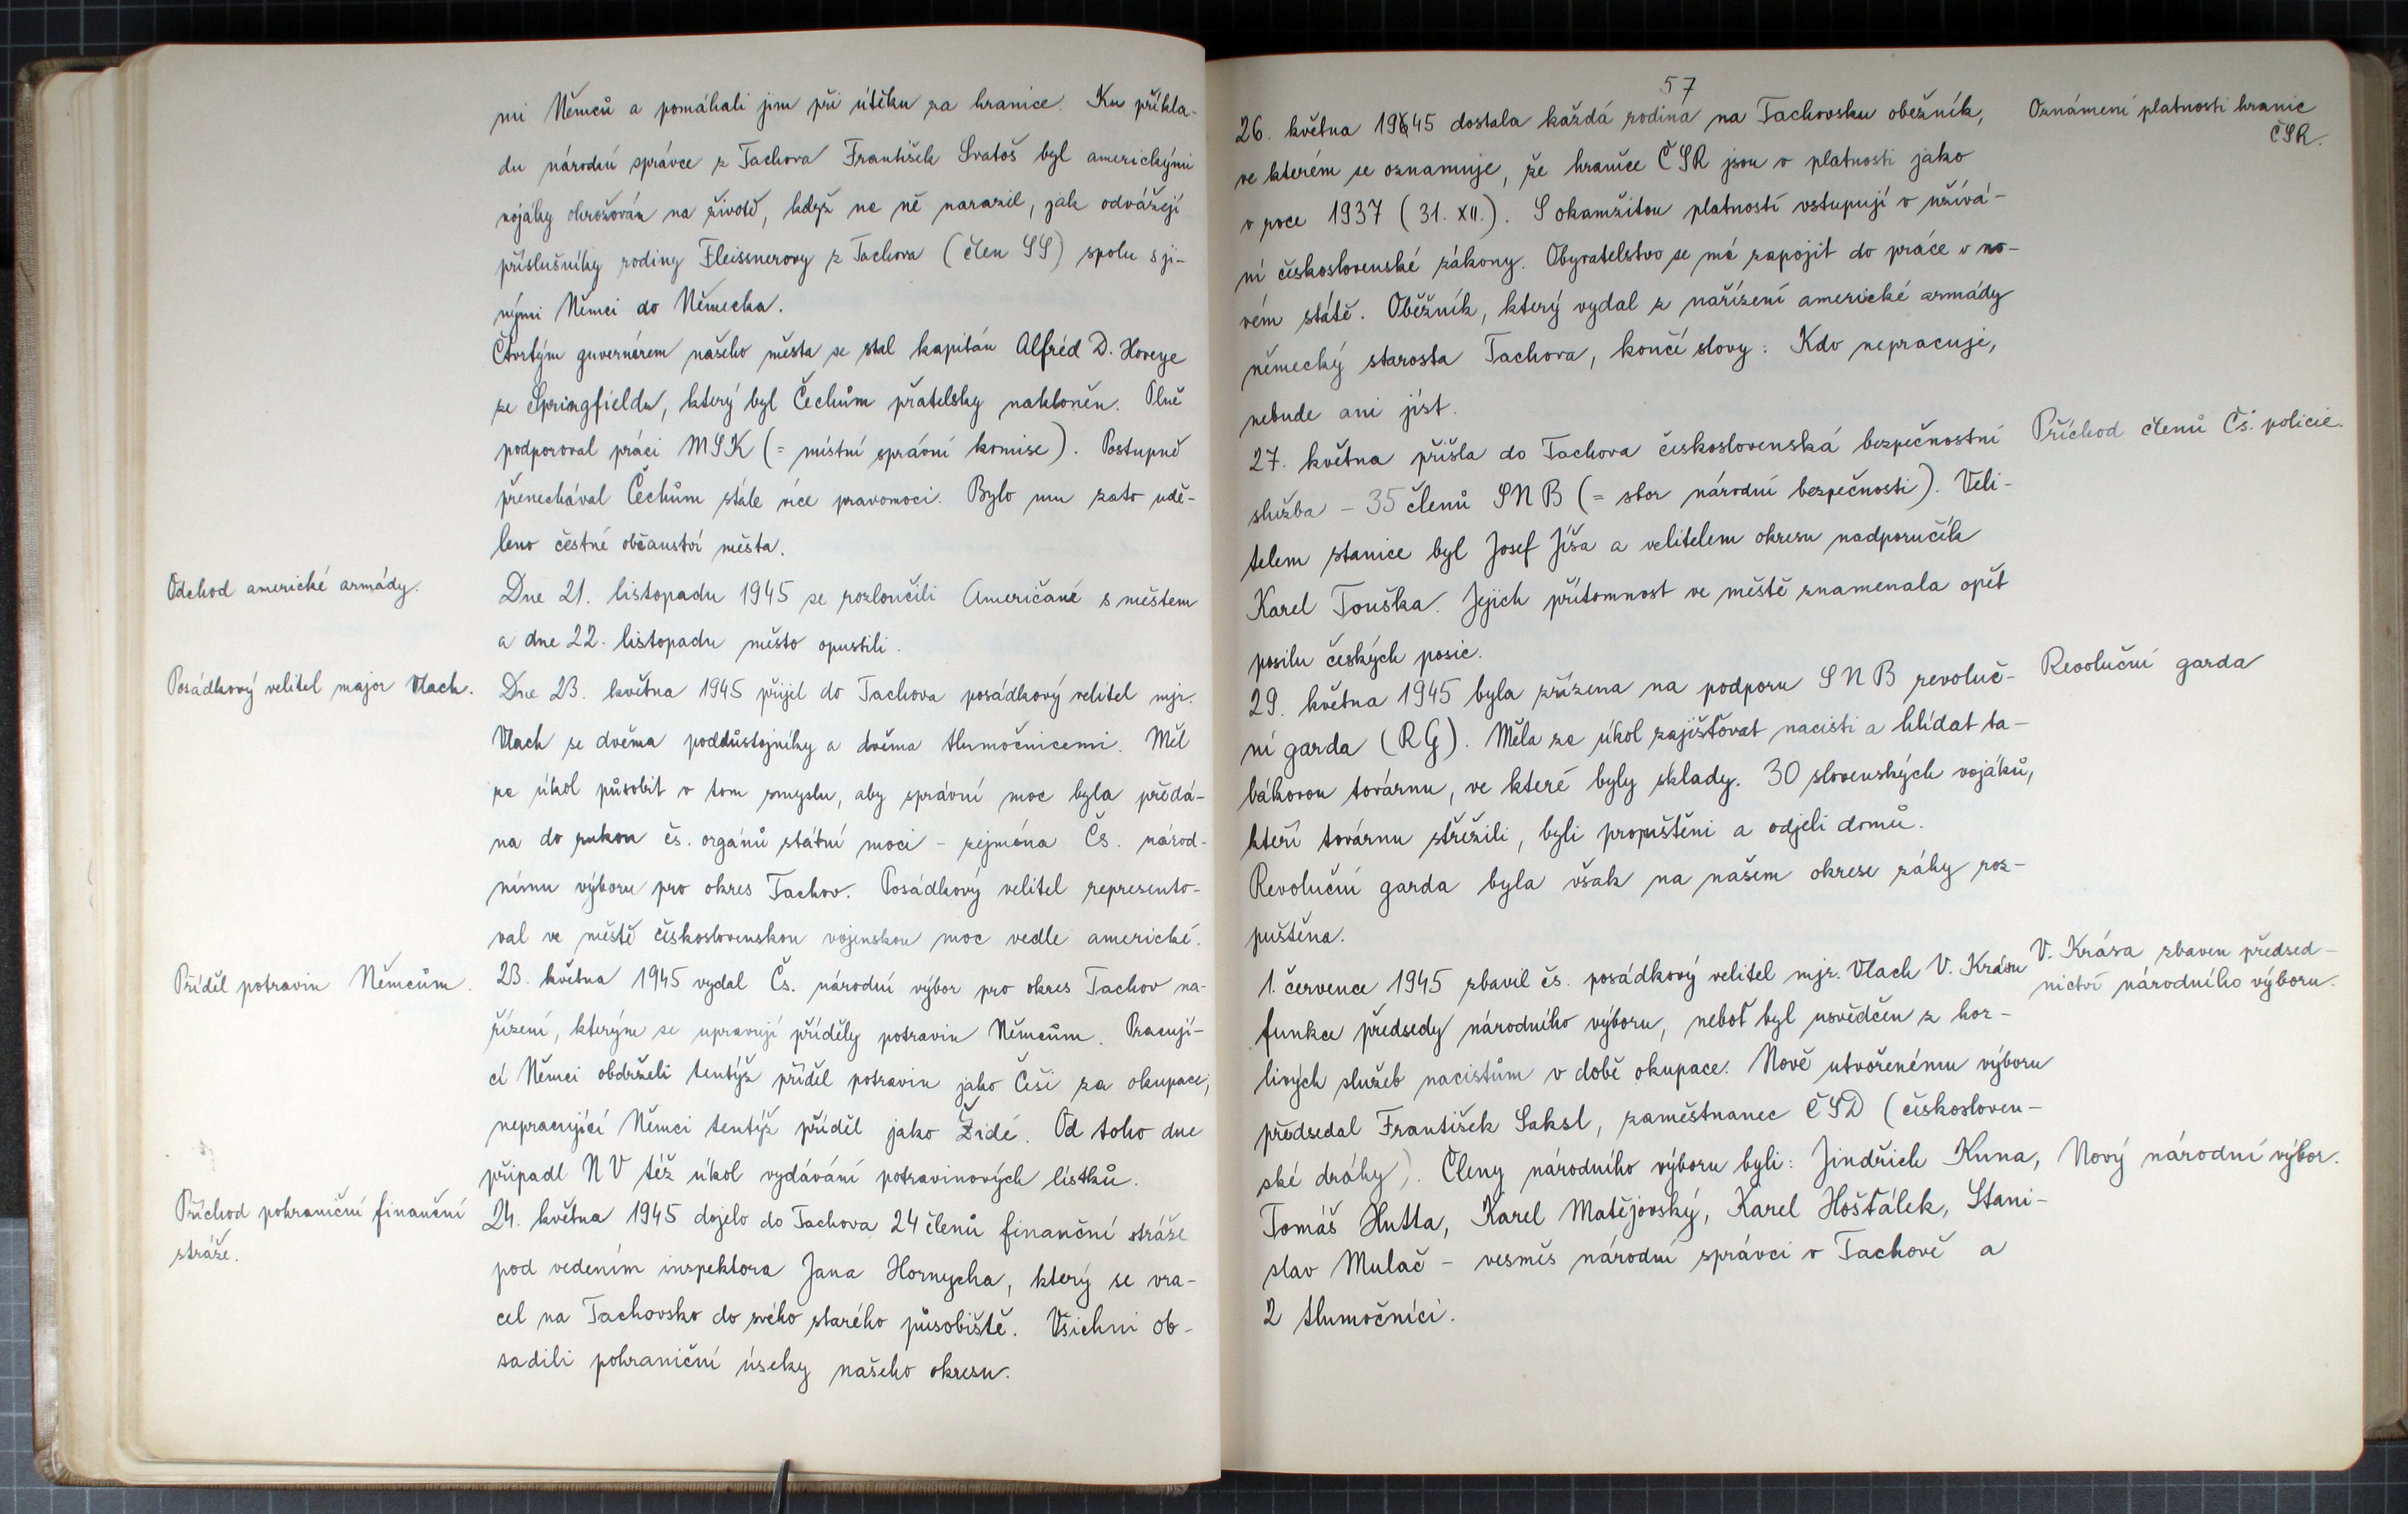 mi Němců a pomáhali jim při útěku za hranice. Ku příkla-
du národní správce z Tachova František Svatoš byl americkými
vojáky ohrožován na životě, když na ně narazil, jak odvážejí
příslušníky rodiny Fleissnerovy z Tachova (člen SS) spolu s ji-
nými Němci do Německa.
Čtvrtým guvernérem našeho města se stal kapitán Alfréd D. Hoveye
ze Springfieldu, který byl Čechům přátelsky nakloněn. Plně
podporoval práci MSK (= místní správní komise). Postupně
přenechával Čechům stále více pravomoci. Bylo mu zato udě-
leno čestné občanství města.
Odchod americké armády.
Dne 21. listopadu 1945 se rozloučili Američané s městem
a dne 22. listopadu město opustili.
Posádkový velitel major Vlach.
Dne 23. května 1945 přijel do Tachova posádkový velitel mjr.
Vlach se dvěma poddůstojníky a dvěma tlumočnicemi. Měl
za úkol působit v tom smyslu, aby správní moc byla předá-
na do rukou čs. orgánů státní moci - zejména Čs. národ-
nímu výboru pro okres Tachov. Posádkový velitel represento-
val ve městě československou vojenskou moc vedle americké.
Příděl potravin Němcům.
23. května 1945 vydal Čs. národní výbor pro okres Tachov na-
řízení, kterým se upravují příděly potravin Němcům. Pracují-
cí Němci obdrželi tentýž příděl potravin jako Češi za okupace,
nepracující Němci tentýž příděl jako Židé. Od toho dne
připadl NV též úkol vydávání potravinových lístků.
Příchod pohraniční finanční
stráže.
24. května 1945 dojelo do Tachova 24 členů finanční stráže
pod vedením inspektora Jana Hornycha, který se vra-
cel na Tachovsko do svého starého působiště. Všichni ob-
sadili pohraniční úseky našeho okresu.
57
26. května 1945 dostala každá rodina na Tachovsku oběžník,
Oznámení platnosti hranic
ČSR.
ve kterém se oznamuje, že hranice ČSR jsou v platnosti jako
v roce 1937 (31. XII.). S okamžitou platností vstupují v užívá-
ní československé zákony. Obyvatelstvo se má zapojit do práce v no-
vém státě. Oběžník, který vydal z nařízení americké armády
německý starosta Tachova, končí slovy: Kdo nepracuje,
nebude ani jíst.
27. května přišla do Tachova československá bezpečnostní
Příchod členů Čs. policie.
služba - 35 členů SNB (= sbor národní bezpečnosti). Veli-
telem stanice byl Josef Jíša a velitelem okresu nadporučík
Karel Touška. Jejich přítomnost ve městě znamenala opět
posilu českých posic.
29. května 1945 byla zřízena na podporu SNB revoluč-
Revoluční garda
ní garda (RG). Měla za úkol zajišťovat nacisti a hlídat ta-
bákovou továrnu, ve které byly sklady. 30 slovenských vojáků,
kteří továrnu střežili, byli propuštěni a odjeli domů.
Revoluční garda byla však na našem okrese záhy roz-
puštěna.
1. července 1945 zbavil čs. posádkový velitel mjr. Vlach V. Krásu
V. Krása zbaven předsed-
nictví národního výboru.
funkce předsedy národního výboru, neboť byl usvědčen z hor-
livých služeb nacistům v době okupace. Nově utvořenému výboru
předsedal František Saksl, zaměstnanec ČSD (českosloven-
ské dráhy). Členy národního výboru byli: Jindřich Kuna,
Nový národní výbor.
Tomáš Hutta, Karel Matějovský, Karel Hošťálek, Stani-
slav Mulač - vesměs národní správci v Tachově a
2 tlumočníci.